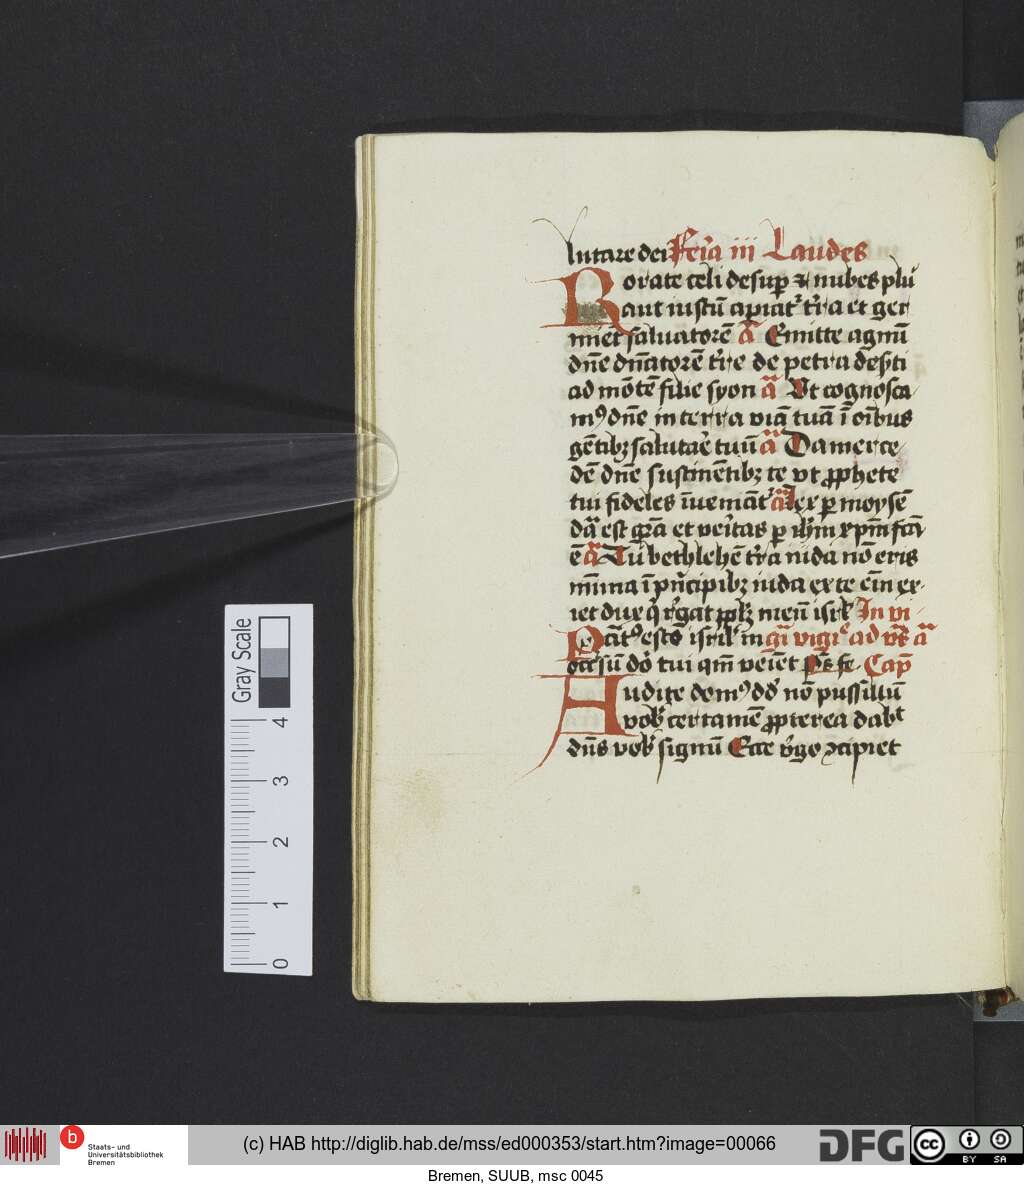 lutare dei Feria iii Laudes
Rorate celi desup̄ et nubes plu
ant iustū apiat᷒ tr̄a et ger
miet saluatorē a͞ Emitte agnū
dn̄e dn̄atorē tr̄e de petra des̄ti
ad mōtē filie syon a͞ Vt cognosca
m⁹ dn̄e in terra viā tuā ī oībus
gētibꝫ salutar̄e tuū a͞ Da merce
dē dn̄e sustinētibꝫ te vt ꝓphete
tui fideles īueniāt᷒ a͞ Lex ꝑ moysē
da͞ est gr̄a et veritas ꝑ ih̄m xpm̄ fca͞
ē a͞ Tu bethlehē tr̄a iuda nō eris
mīma ī pn̄cipibꝫ iuda ex te eīn ex
iet dux q̇ r̄gat pplꝫ meū isrl̄ In vi
Pāt⁹ estō isrl̄ in gi͞ vigi᷒ ad vt̄ a͞
occ̄sū do᷒ tui qm̄ veīet p̄s fe Cap̄
Audite dom⁹ dd̄ nō pusillū
vob᷒ certamē ꝓpterea dabt
dn̄s vob᷒ signū Ecce v̇go ꝯcipiet
Gray Scale
4
3
2
1
0
b Staats- und
Universitätsbibliothek
Bremen
(c) HAB http://diglib.hab.de/mss/ed000353/start.htm?image=00066
DFG
cc BY SA
Bremen, SUUB, msc 0045